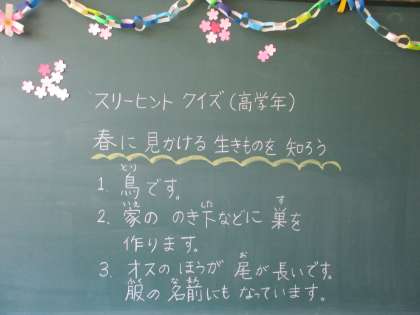 スリーヒント クイズ(高学年)
春に見かける生きものを知ろう
1. 鳥です。
2. 家ののき下などに巣を
作ります。
3. オスのほうが尾が長いです。
服の名前にもなっています。